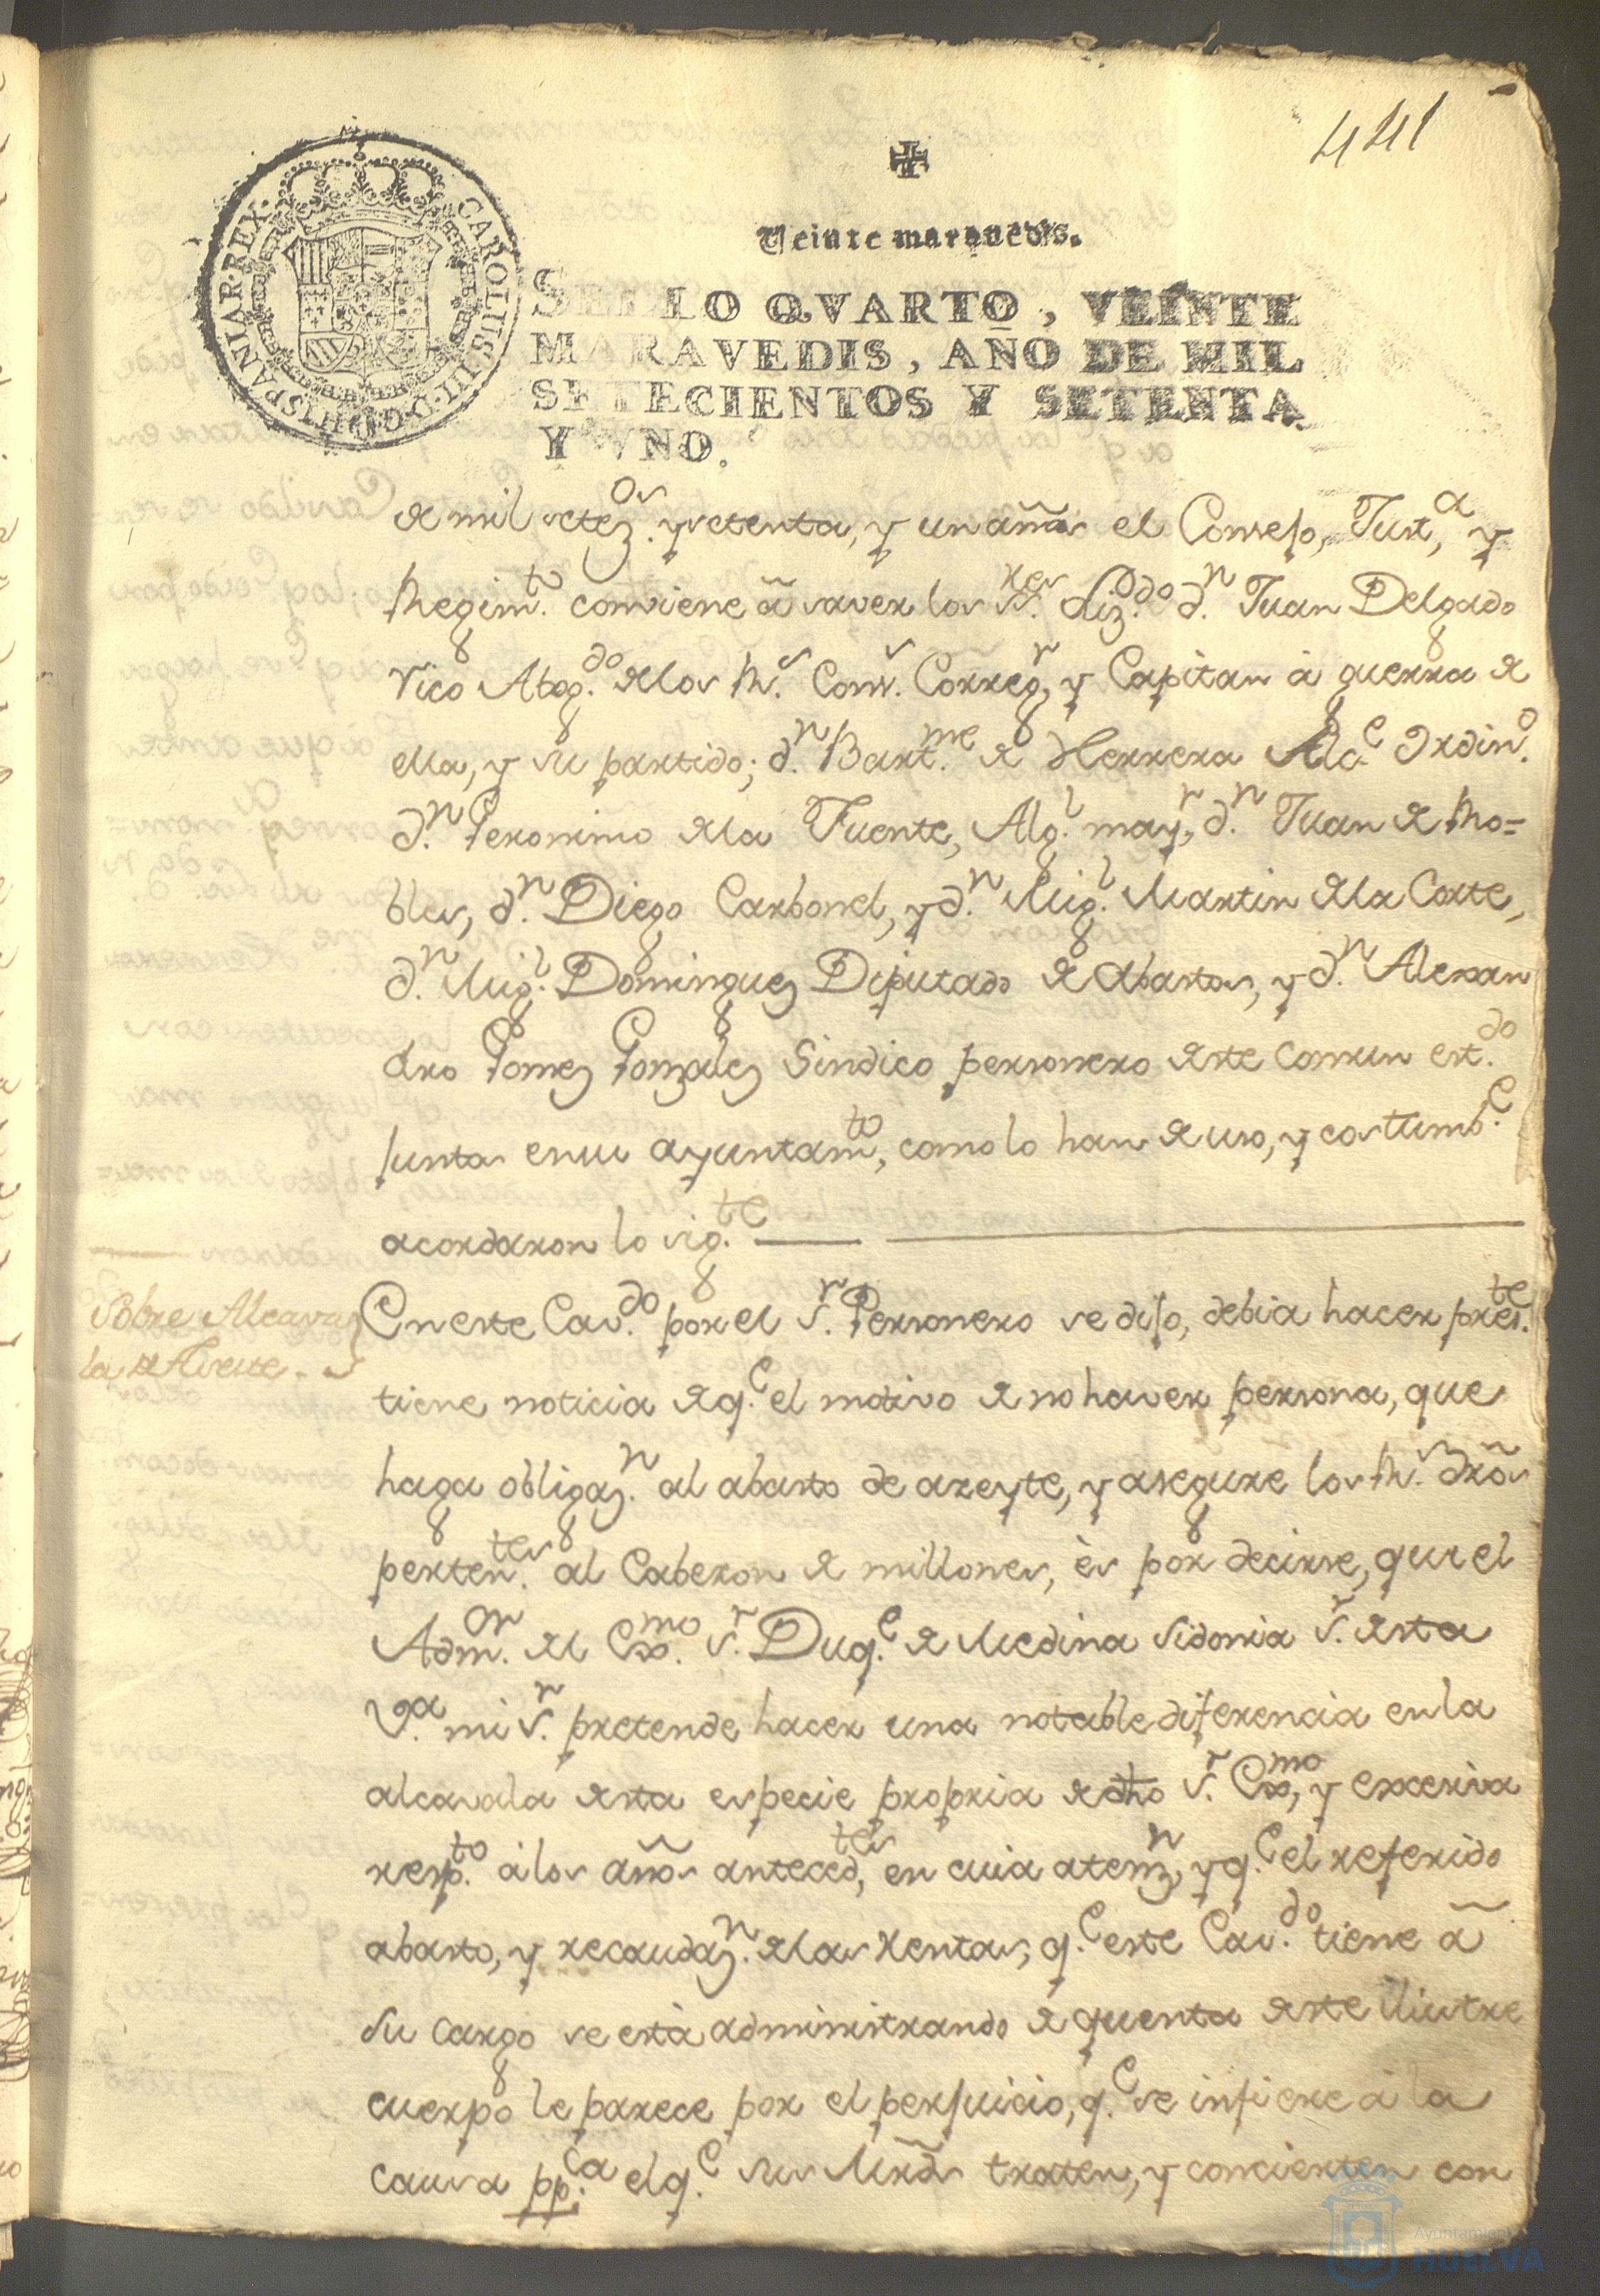 441
Veinte maravedis.
SELLO QVARTO, VEINTE
MARAVEDIS, AÑO DE MIL
SETECIENTOS Y SETENTA
Y VNO.
CAROLUS III D G HISPANIAR REX
de mil setez.os y setenta, y un años el Consejo, Just.a, y
Regim.to conviene â saver los S.res Liz.do d.n Juan Delgado
Vico Abog.do de los R.s Cons.s Correg.r, y Capitan à guerra de
ella, y su partido; d.n Bart.me de Herrera Alc.e Ordin.o
d.n Geronimo de la Fuente, Alg.l may.r, d.n Juan de Ro=
bles, d.n Diego Carbonel, y d.n Mig.l Martin de la Corte,
d.n Mig.l Dominguez Diputado de Abastos, y d.n Alexan
dro Gomez Gonzalez Sindico personero deste Comun est.do
juntos en su ayuntam.to, como lo han de uso, y costumb.e
acordaron lo sig.te
Sobre Alcava
la de Aseite.
En este Cav.do por el S.r Personero se dijo, debia hacer pres.te
tiene noticia de q.e el motivo de no haver persona, que
haga obligaz.n al abasto de azeyte, y asegure los R.s dr̃os
perten.tes al Cabezon de millones, ès por decirse, que el
Adm.or del Exmo. S.r Duq.e de Medina Sidonia S.r desta
V.a mi S.r pretende hacer una notable diferencia en la
alcavala desta especie propria de dho S.r Exmo, y excesiva
resp.to à los años anteced.tes, en cuia atenz.n, y q.e el referido
abasto, y recaudaz.n de las Rentas, q.e este Cav.do tiene â
su cargo se està administrando de quenta deste Ilustre
cuerpo le parece por el perjuicio, q.e se infiere à la
causa pp.ca el q.e sus Mrds traten, y concierten con
Ayuntamiento
HUELVA